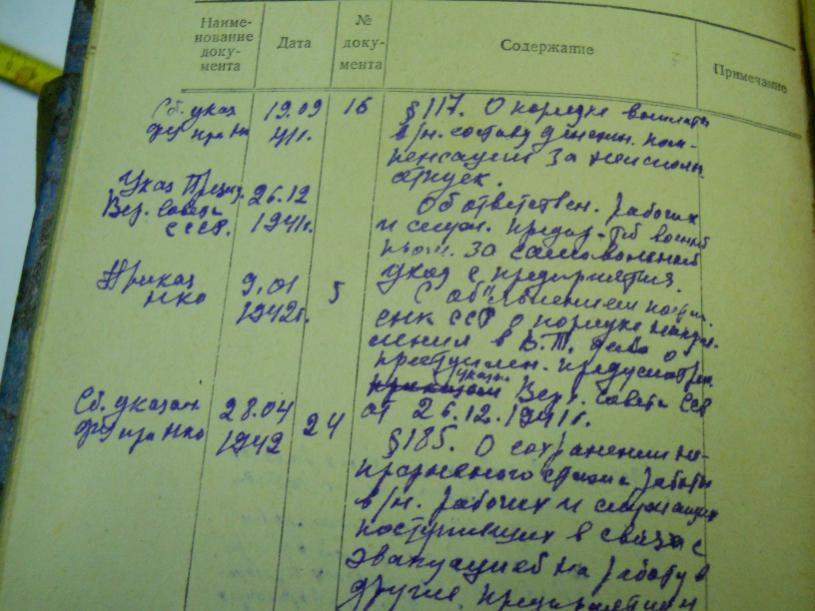 Наиме-
нование
доку-
мента
Дата
№
доку-
мента
Содержание
Примечание
Сб. указ.
19.09
41г.
16
§117. О порядке выплаты
в/н. составу денежн. ком-
пенсации за неиспольз.
отпуск.
Указ През.
Вер. Совета
СССР.
26.12
1941г.
Об ответствен. рабочих
и служ. предпр-тий военной
пром. за самовольный
уход с предприятия.
Приказ
НКО
9.01
1942г.
5
С объявлением
СНК СССР о порядке направ-
ления в В.Т. дела о
преступлен. предусмотрен.
указом
приказом Верх. Совета ССР
от 26.12.1941г.
Сб. указан.
НКО
28.04
1942
24
§185. О сохранении не-
прерывного стажа работы
в/н. рабочих и служащих
поступивших в связи с
эвакуацией на работу в
другие предприятия